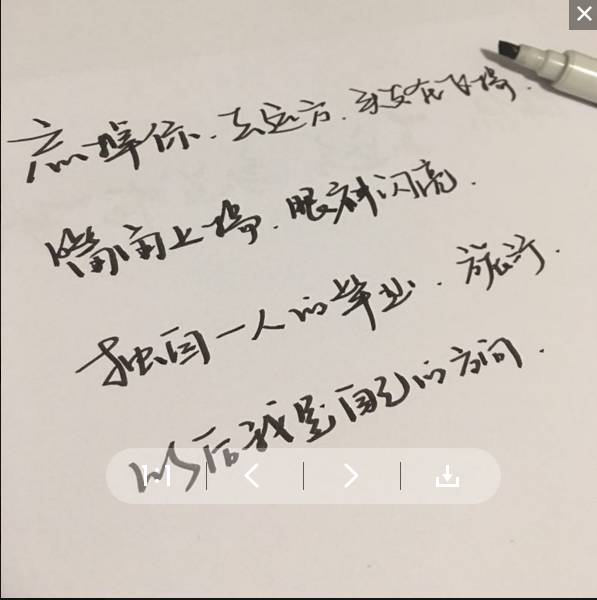 忘掉你.去远方.头发在飞扬.
嘴角上扬.眼神闪亮.
独自一人的毕业.旅行.
以后我是自己的方向.
1:1